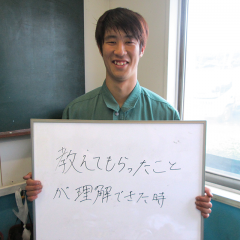 教えてもらったこと
が理解できた時